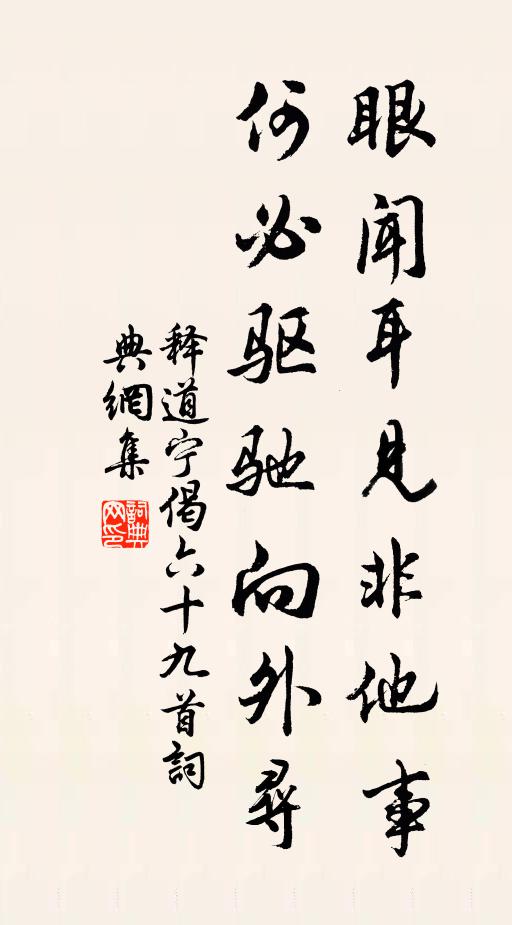 眼闻耳见非他事
何必驱驰向外尋
释道宁偈六十九首詞
典網集
詞典网印